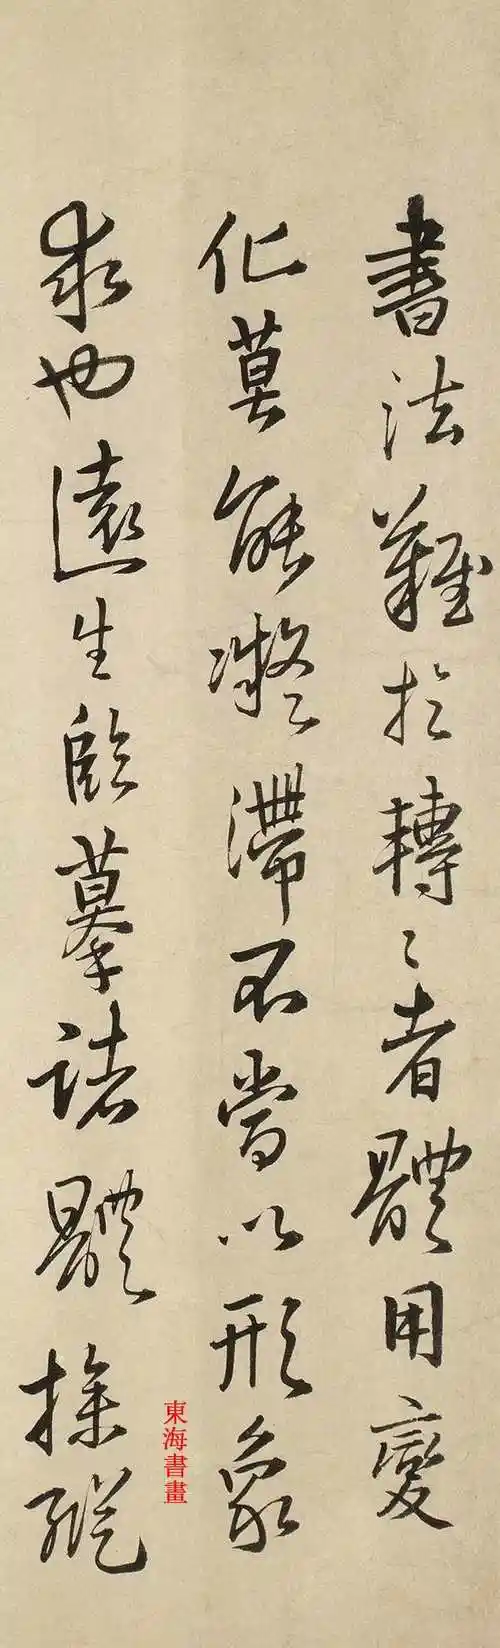 書法難於轉〻者體用變
化莫能凝滯不當以形象
求也遠生臨摹諸體操縱
東海書畫